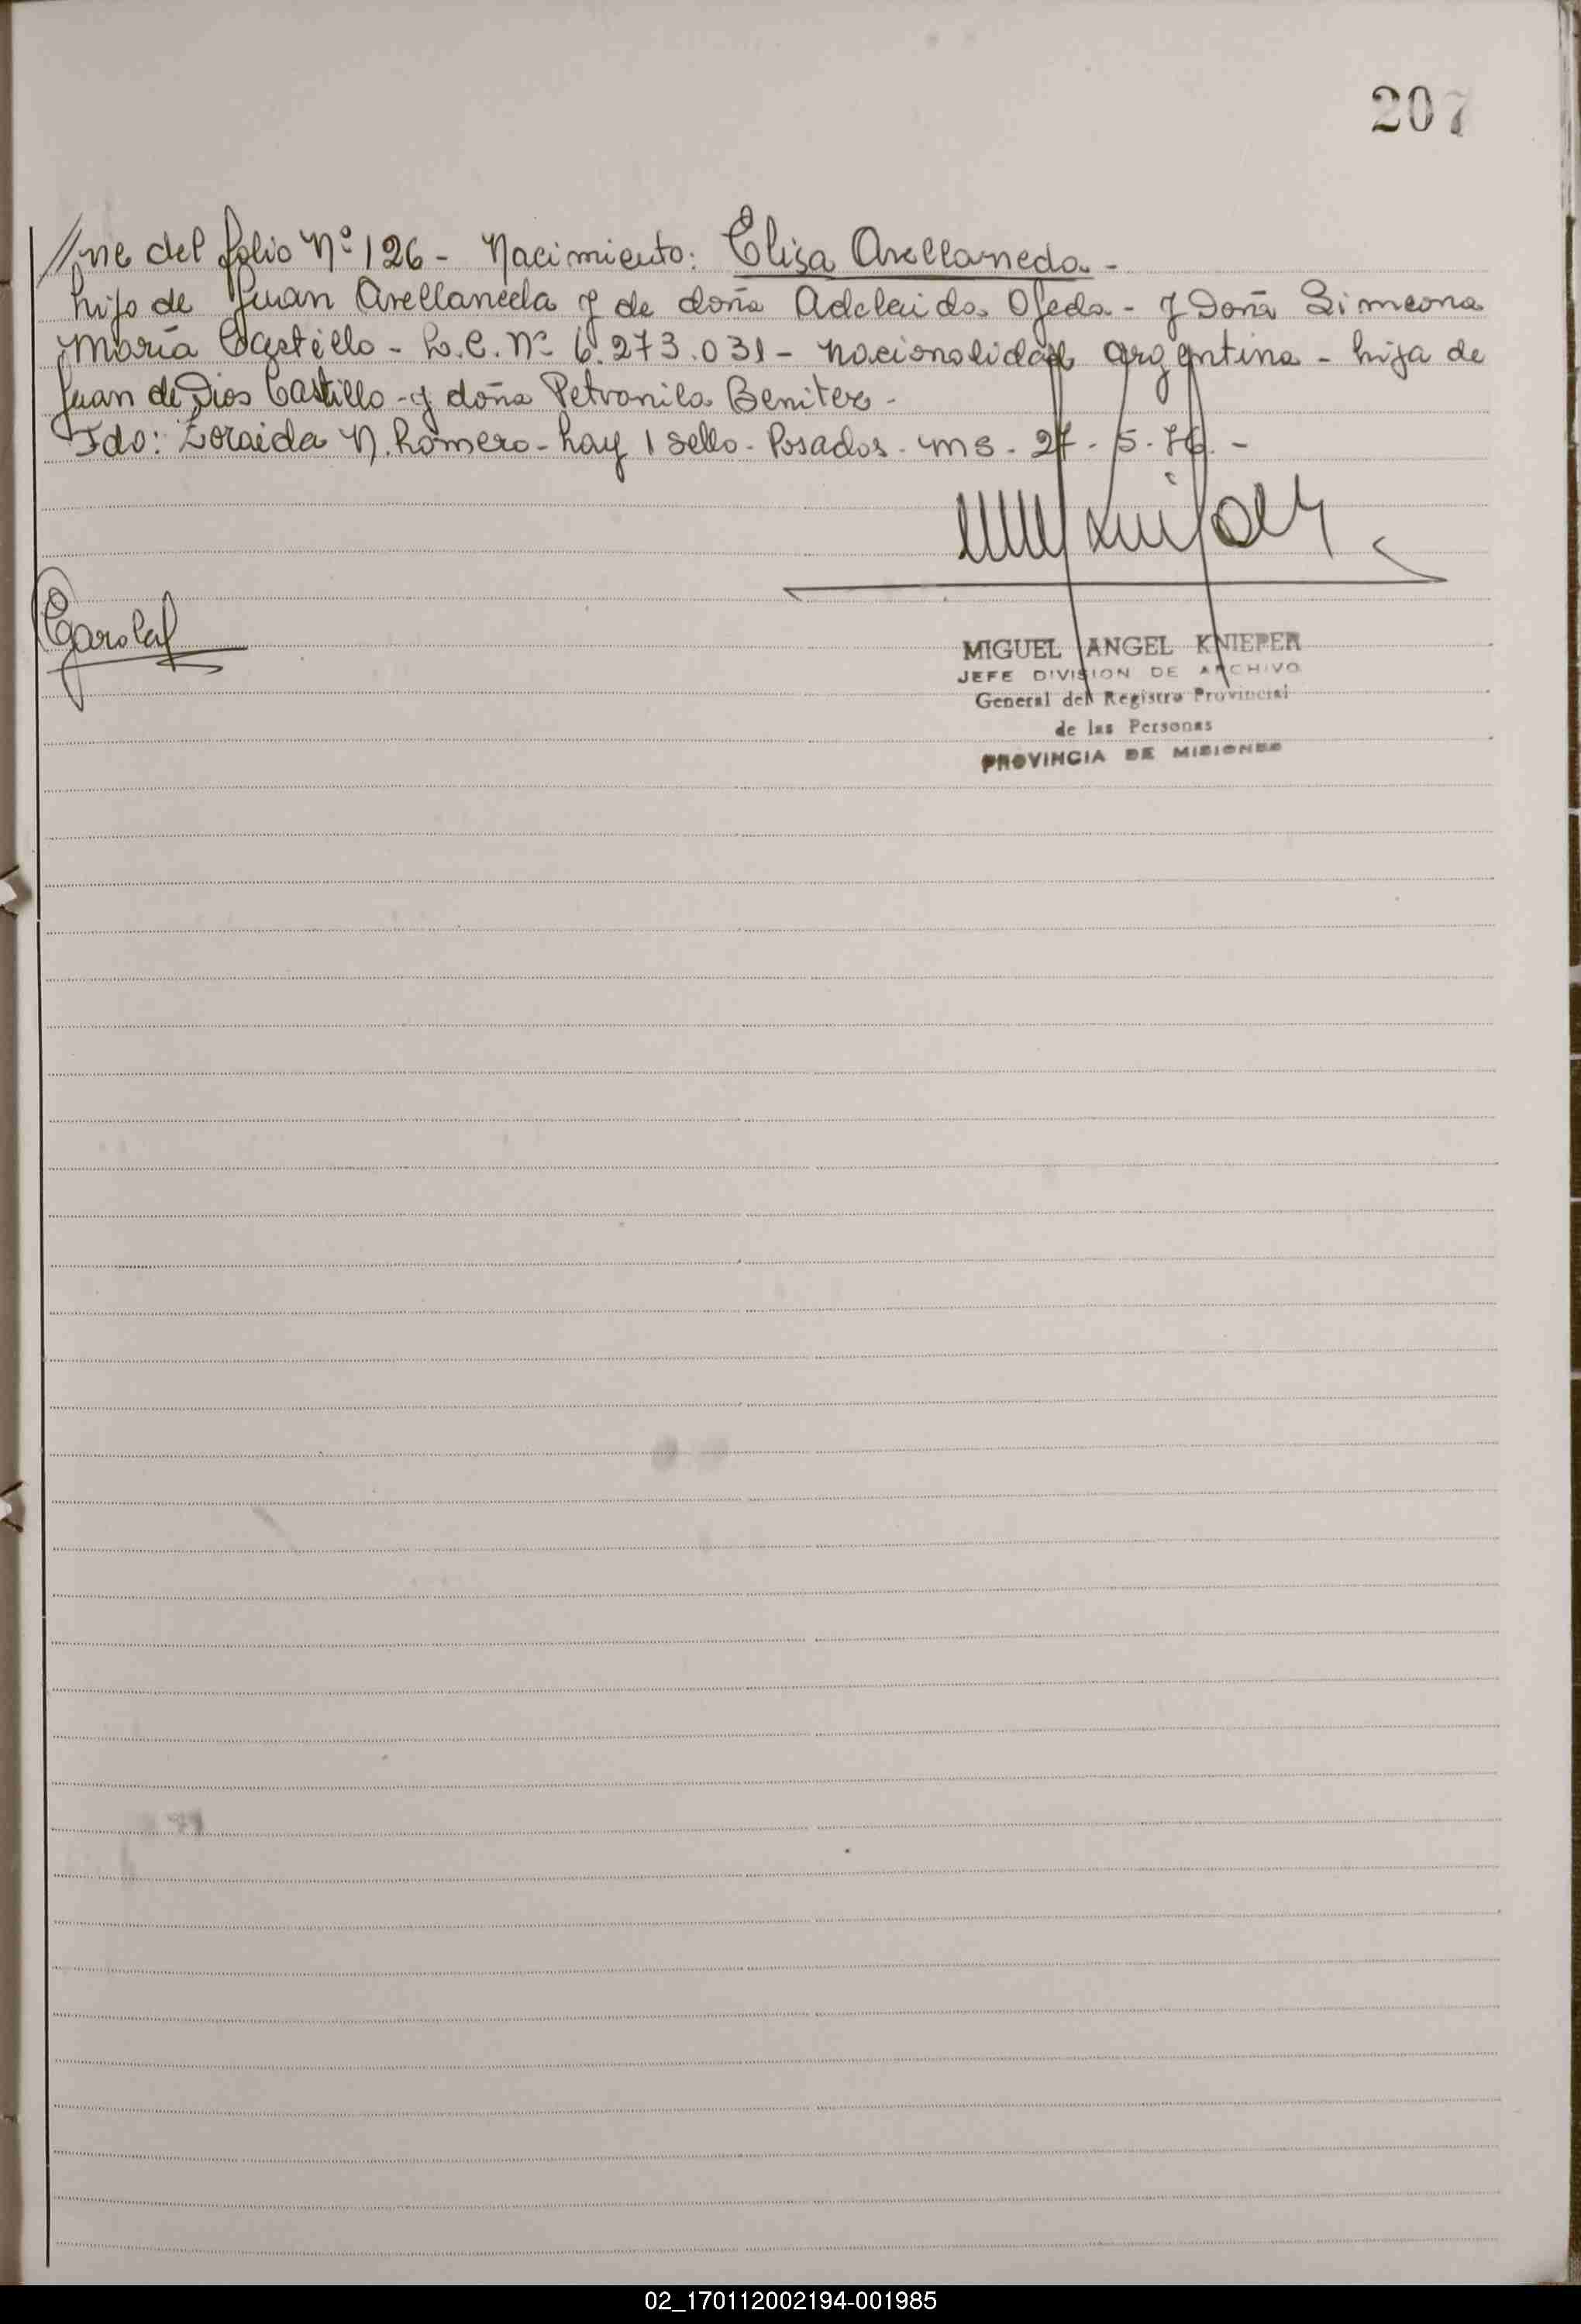 207
//ne del folio Nº 126 - Nacimiento: Elisa Avellaneda -
hijo de Juan Avellaneda y de doña Adelaida Ojeda - y Doña Simeona
María Castillo - L.C. Nº 6.273.031 - nacionalidad argentina - hija de
Juan de Dios Castillo - y doña Petronila Benitez -
Fdo: Zoraida N. Romero - hay 1 sello - Posadas - ms - 27 - 5 - 76. -
MIGUEL ANGEL KNIEPER
JEFE DIVISION DE ARCHIVO
General del Registro Provincial
de las Personas
PROVINCIA DE MISIONES
02_170112002194-001985